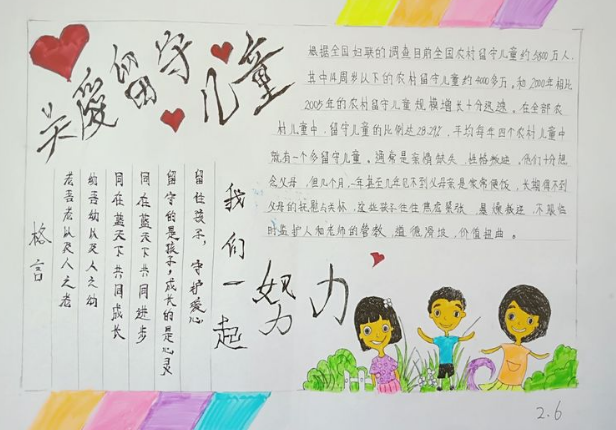 关爱留守儿童
根据全国妇联的调查目前全国农村留守儿童约5800万人,
其中14周岁以下的农村留守儿童约4000多万。和2000年相比
2005年的农村留守儿童规模增长十分迅速。在全部农
村儿童中,留守儿童的比例达28.29%,平均每年四个农村儿童中
就有一个多留守儿童。通常是亲情缺失,性格孤僻。他们十分想
念父母,但几个月、一年甚至几年见不到父母亲是常常便饭,长期得不到
父母的抚慰与关怀,这些孩子往往焦虑紧张、孤僻,不服临
时监护人和老师的管教,道德滑坡,价值扭曲。
我们一起努力
留住孩子,守护爱心
留守的是孩子,成长的是心灵
同在蓝天下共同进步
同在蓝天下共同成长
幼吾幼以及人之幼
老吾老以及人之老
格言
2.6